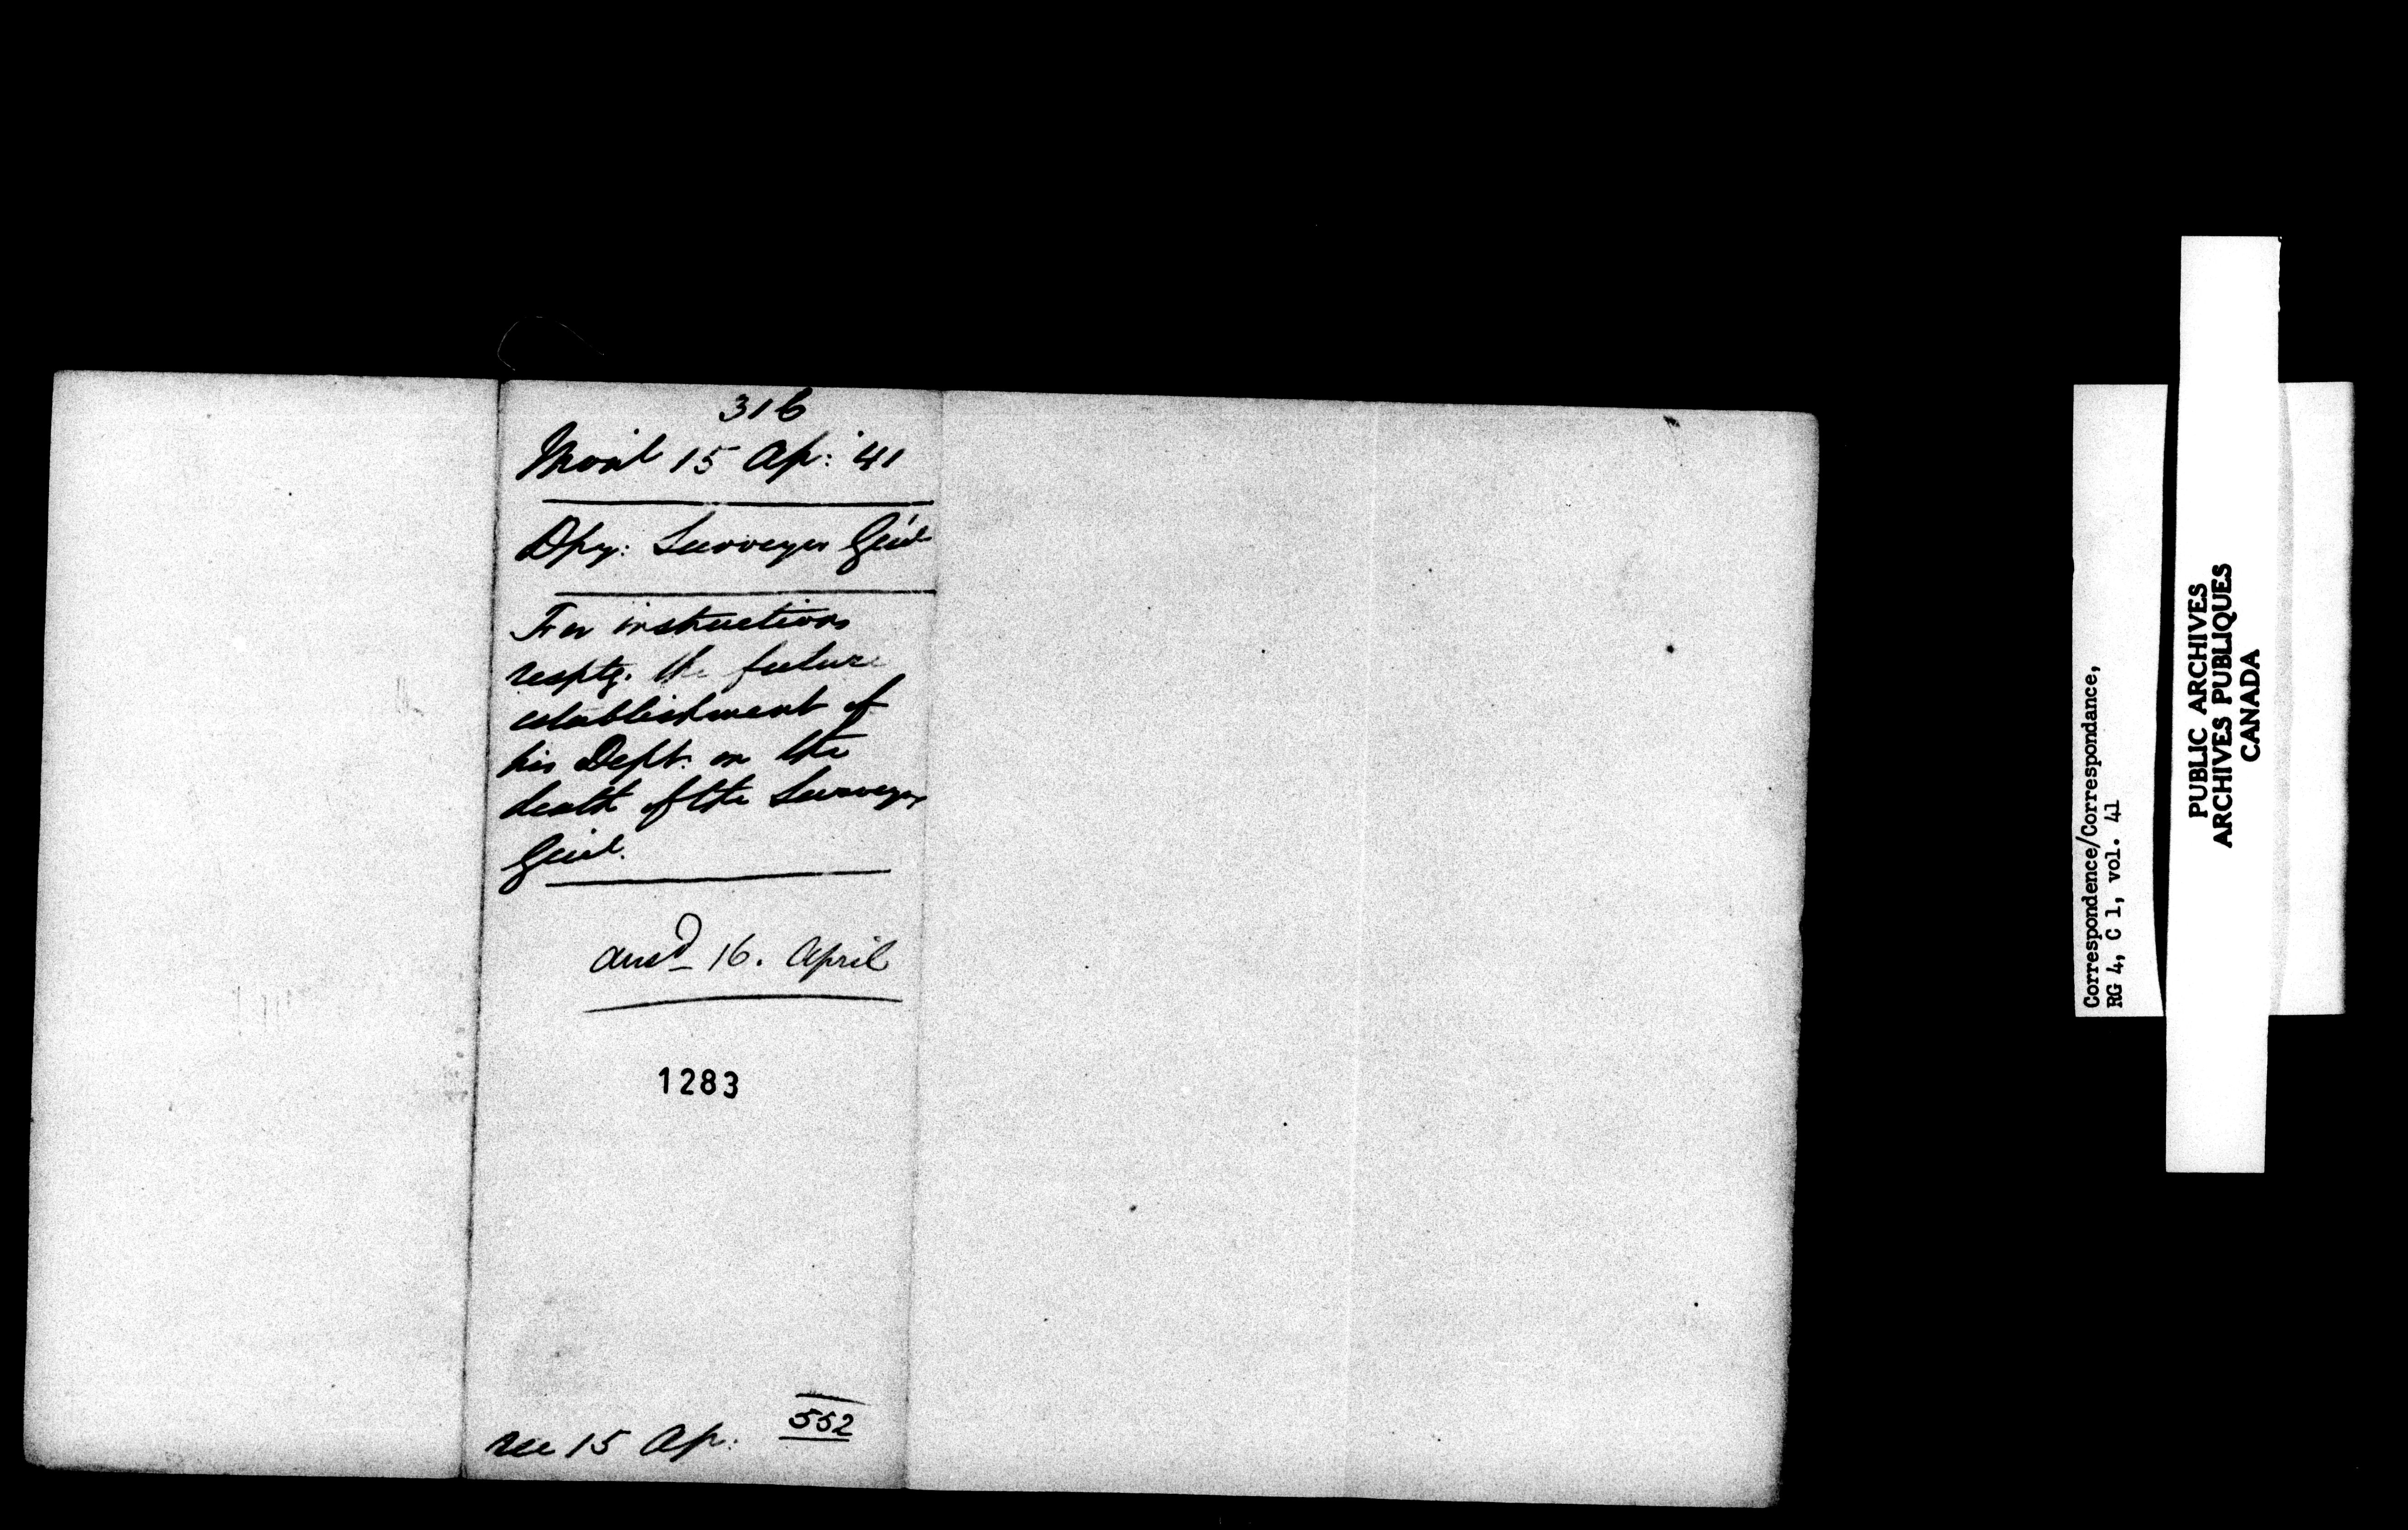 316
Moñl 15 Ap: '41
Dpy: Surveyor Gen'l
For instructions
resptg. the future
establishment of
his Dept. on the
death of the Surveyor
Gen'l.
ansd 16. April
1283
rec 15 Ap:
552
Correspondence/Correspondance,
RG 4, C 1, vol. 41
PUBLIC ARCHIVES
ARCHIVES PUBLIQUES
CANADA